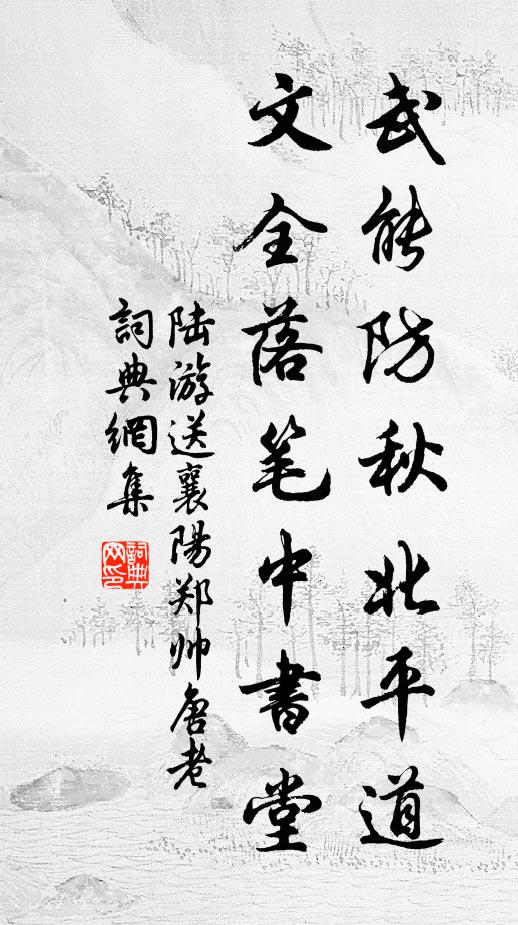 武能防秋北平道
文全落笔中書堂
陆游送襄陽郑帅唐老
詞典網集
詞典网印